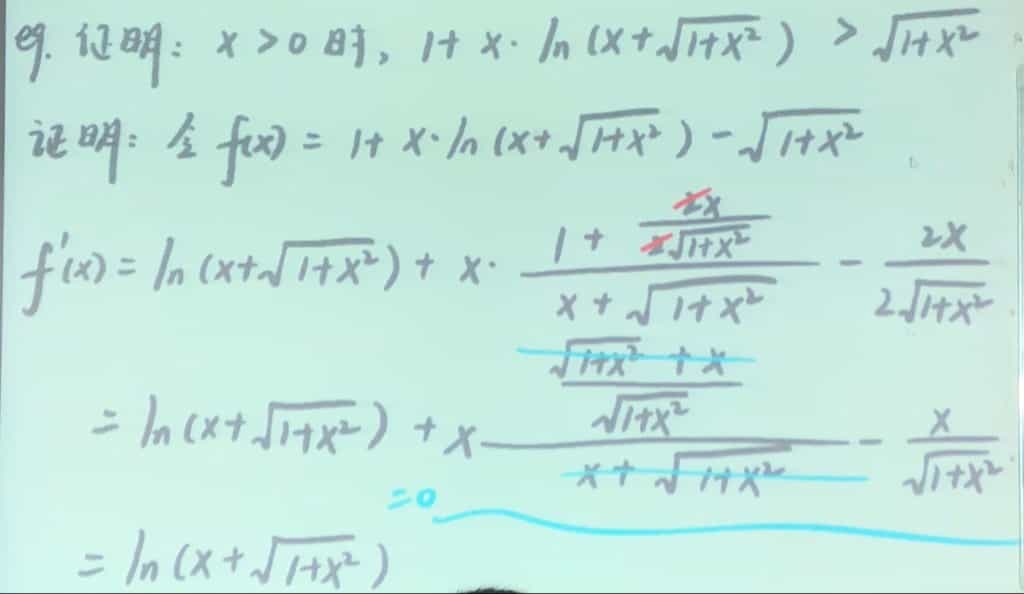 eg. 证明: x > 0 时, 1 + x · ln (x + √(1+x²)) > √(1+x²)
证明: 令 f(x) = 1 + x · ln (x + √(1+x²)) - √(1+x²)
f'(x) = ln (x + √(1+x²)) + x · (1 + 2x/(2√(1+x²)))/(x + √(1+x²)) - 2x/(2√(1+x²))
= ln (x + √(1+x²)) + x ((√(1+x²) + x)/√(1+x²))/(x + √(1+x²)) - x/√(1+x²)
=0
= ln (x + √(1+x²))